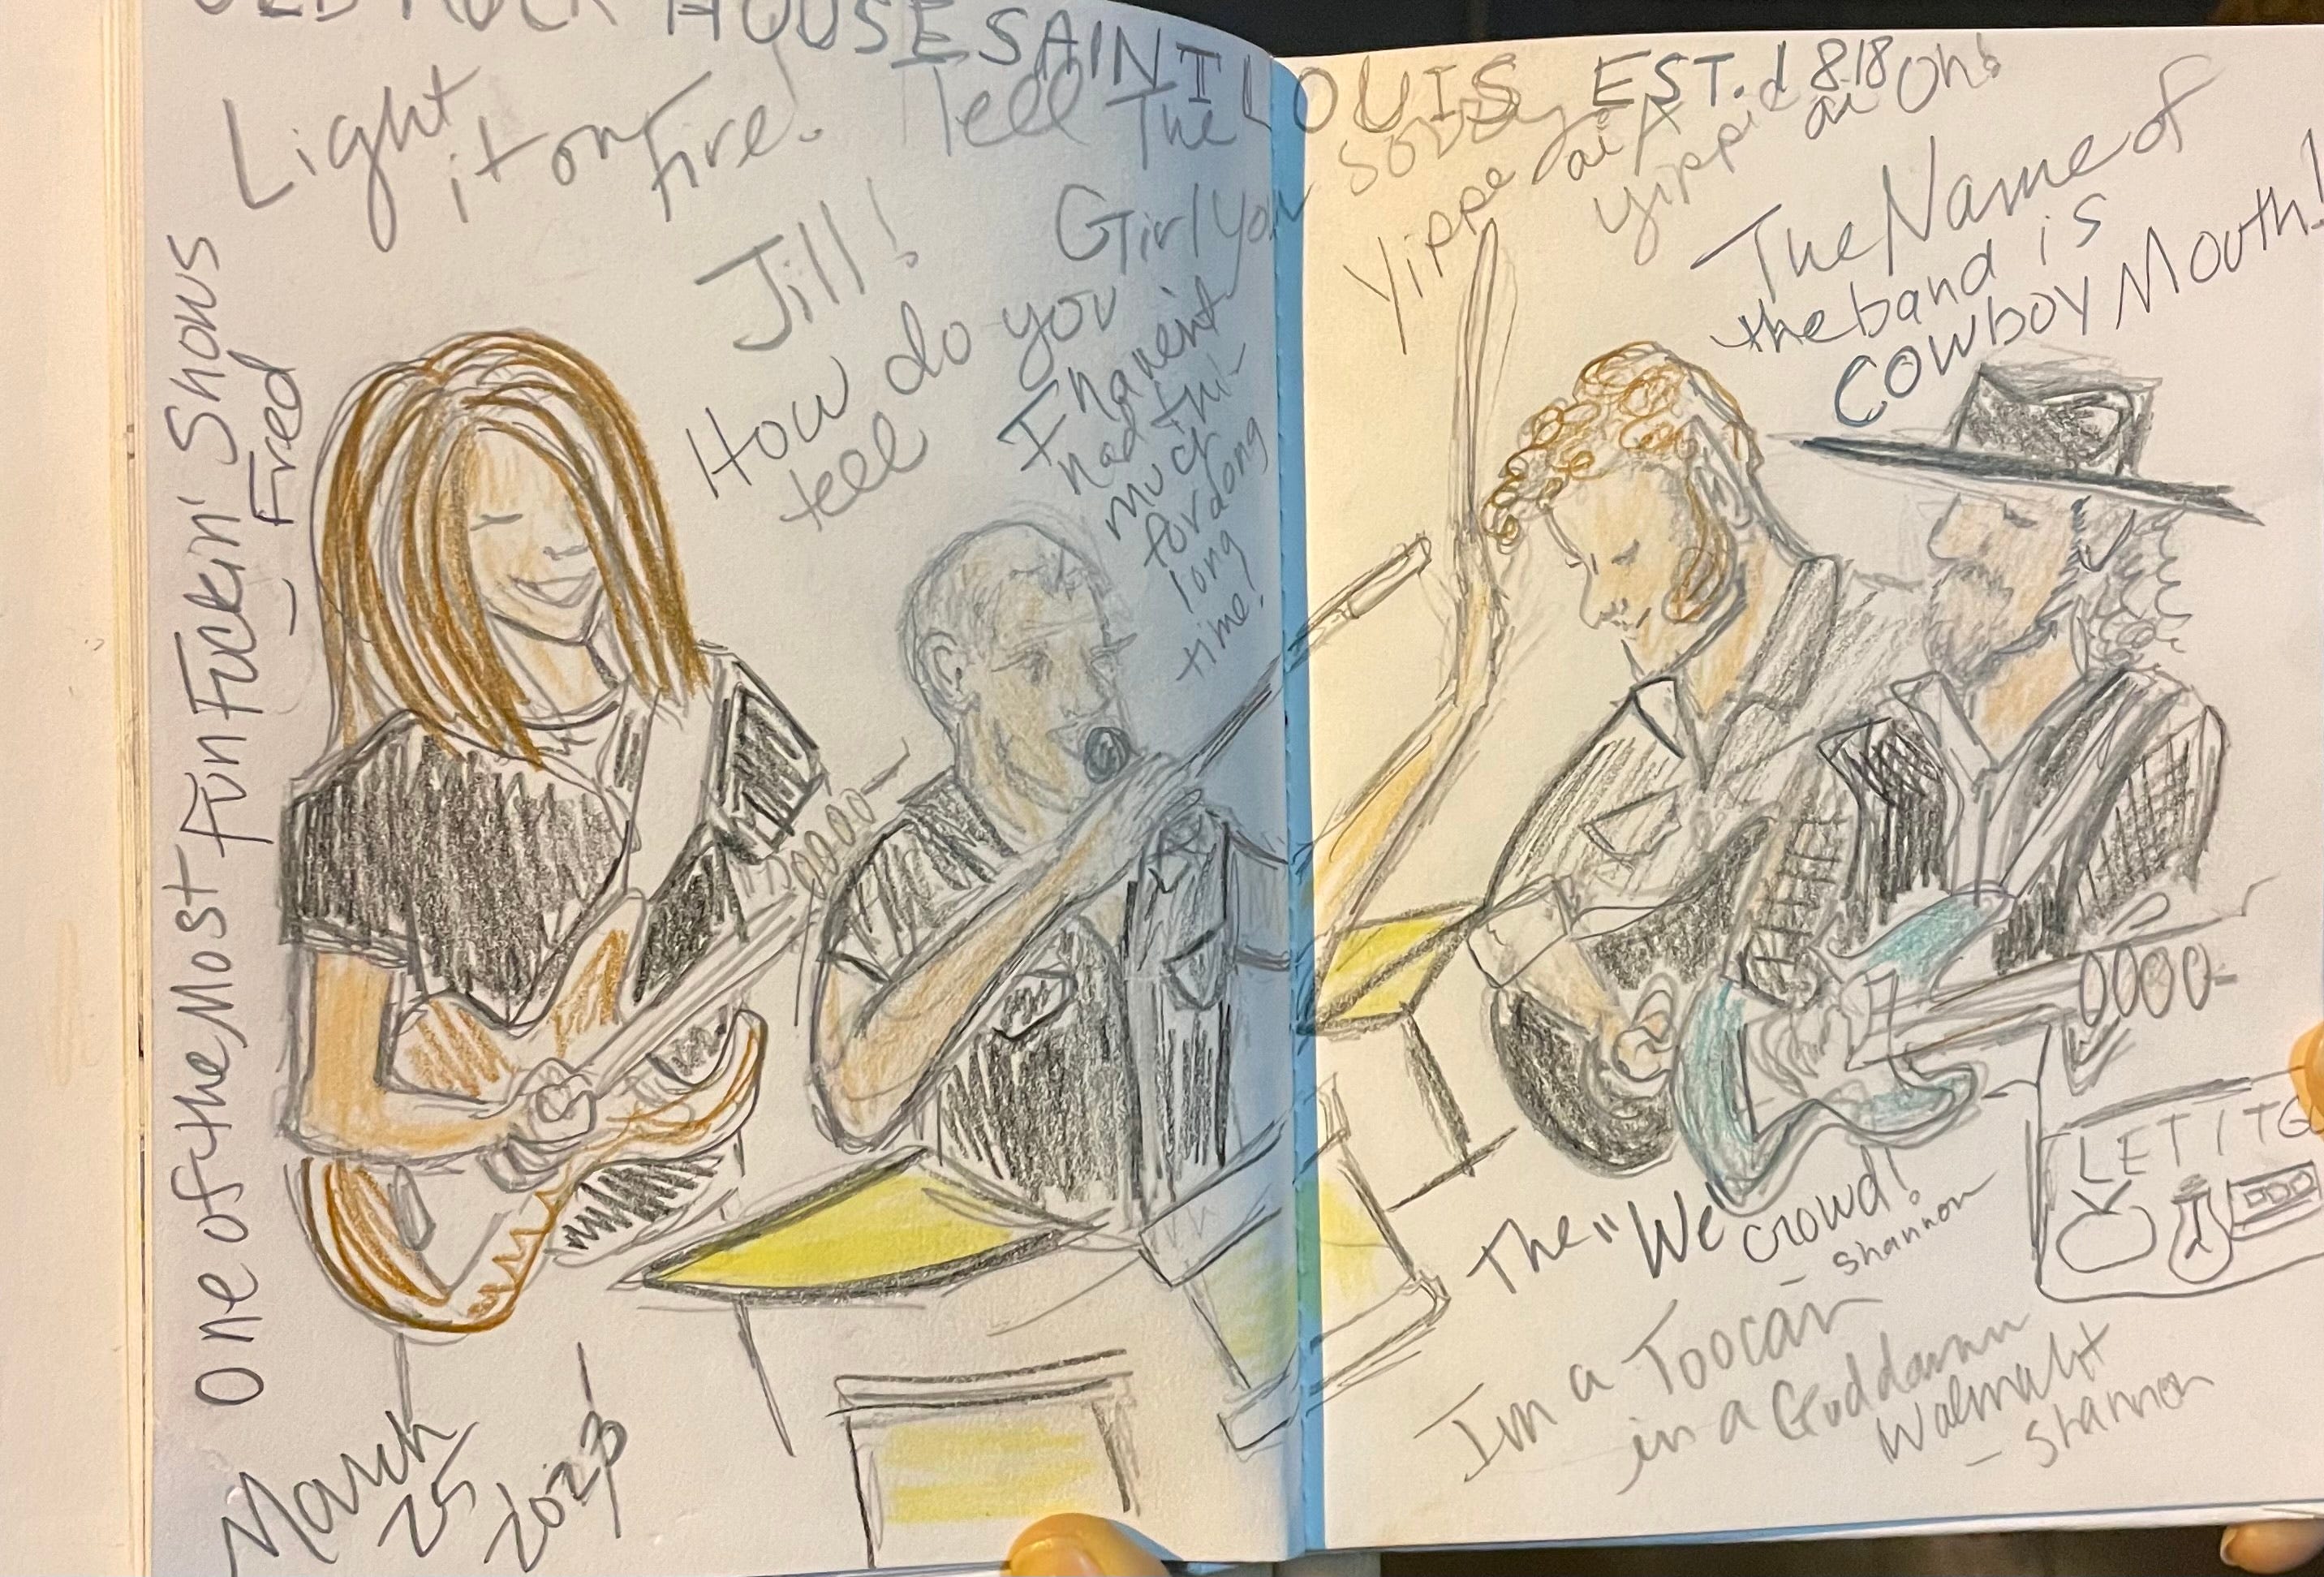 OLD ROCK HOUSE SAINT LOUIS EST. 1818
Light
it on
Fire!
Tell The
Girl You Sorry
Jill!
How do you
tell
I havent
had thi-
much
for a long
long
time!
One of the Most Fun Fuckin' Shows
- Fred
March
25
2023
Yippe ai A
Yippie ai Oh!
The Name of
the band is
COWBOY MOUTH!
LET IT GO
The "We" crowd!
- Shannon
Im a Toocan
in a Goddamn
Walmalt
- Shannon